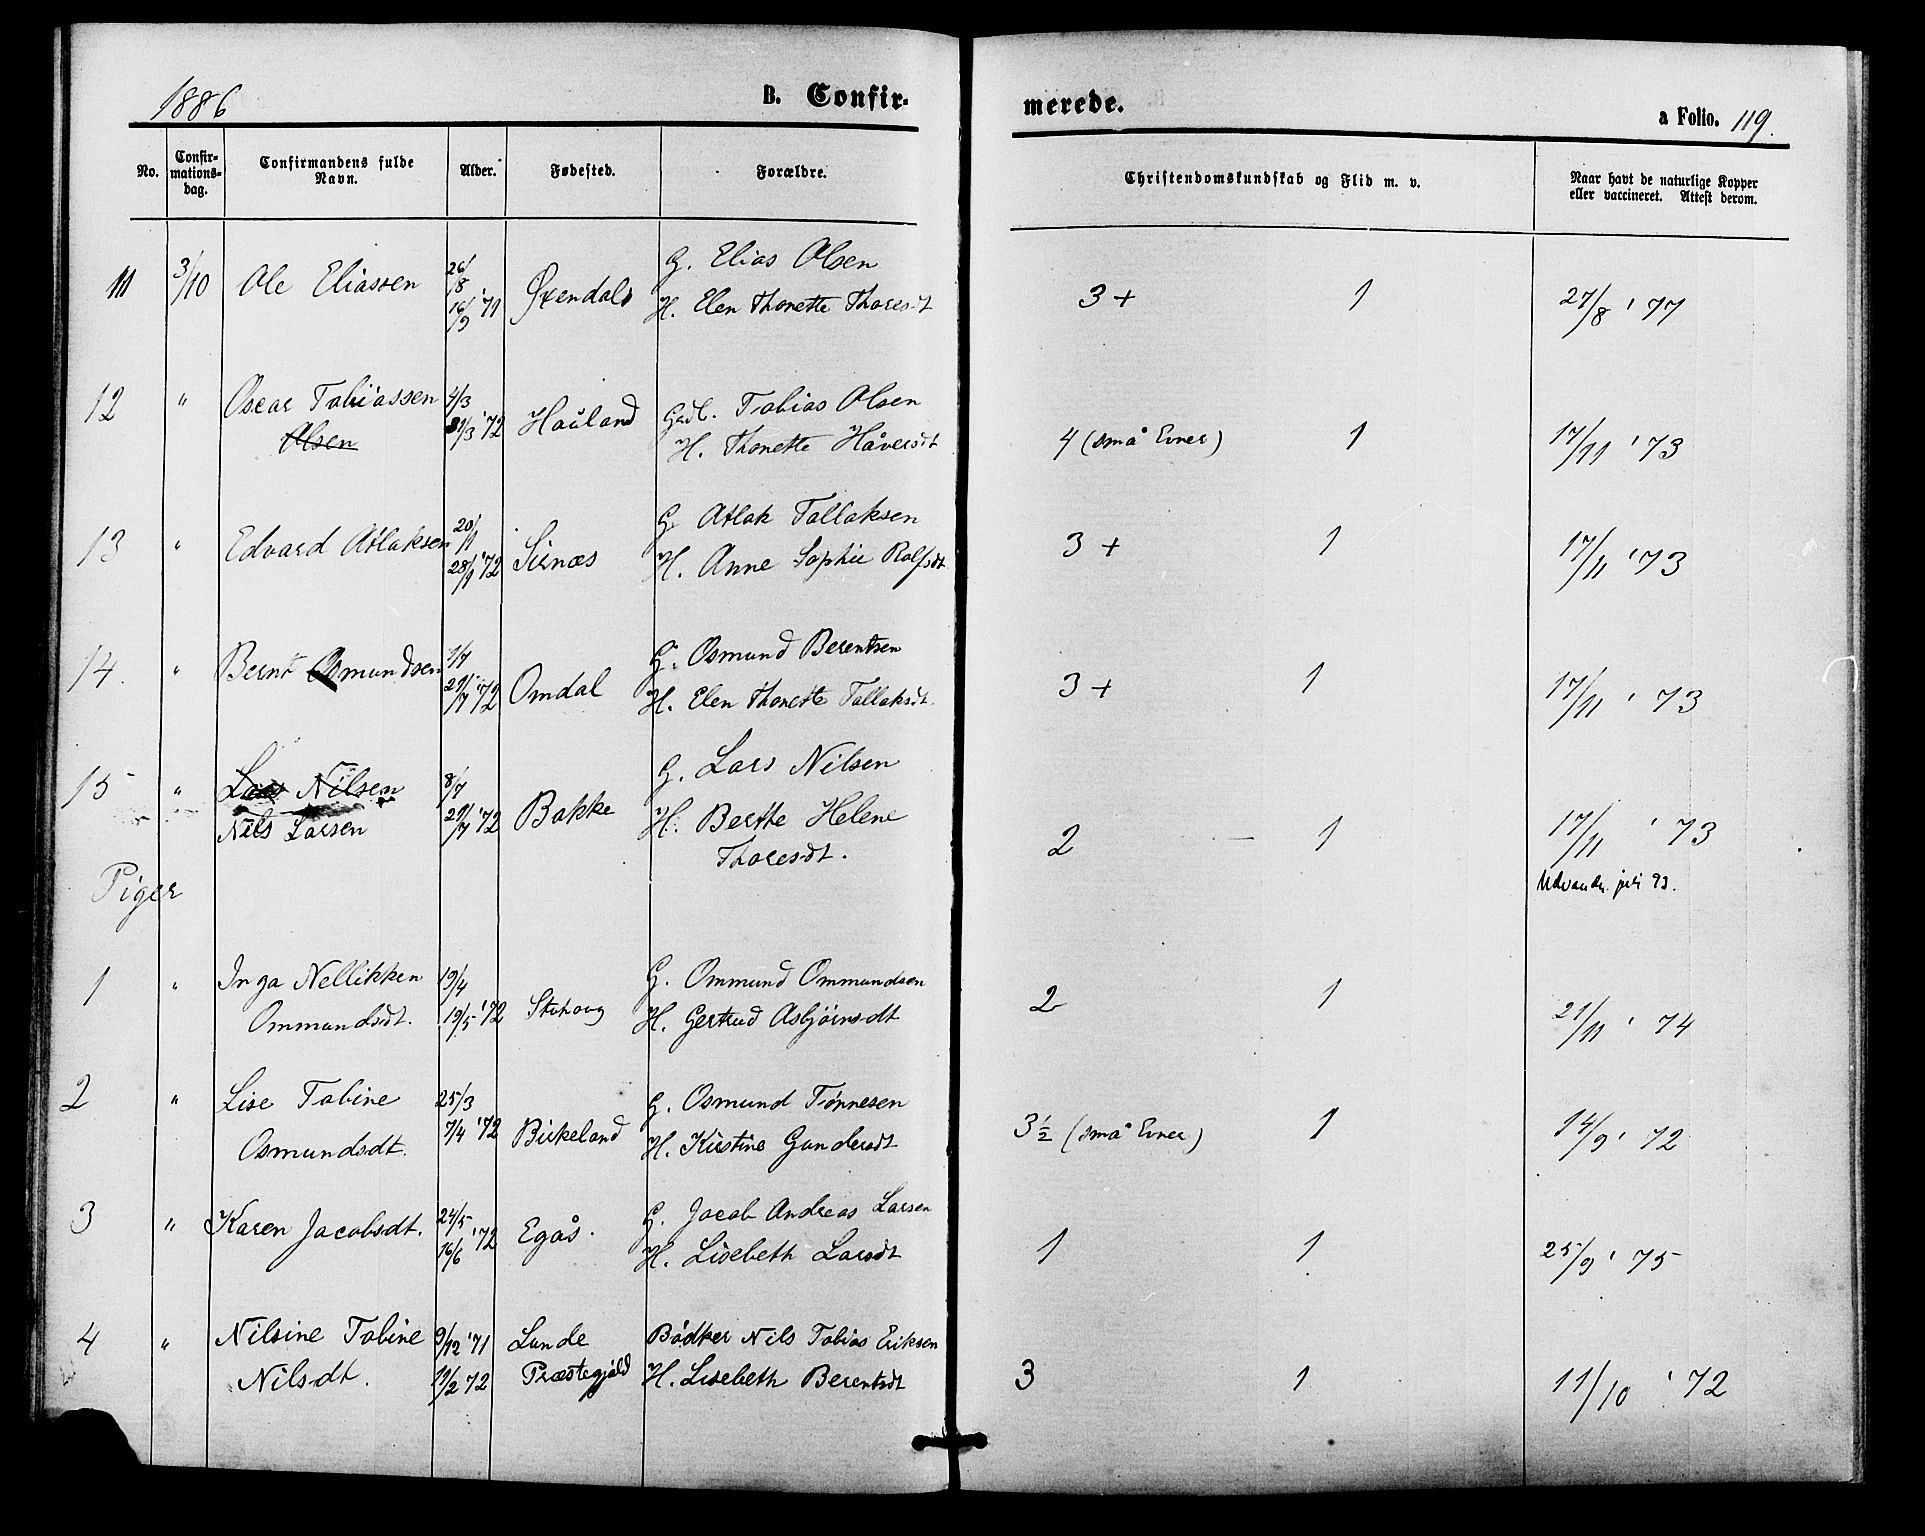 1886
B. Confir-
merede.
a Folio. 119.
No.
Confir-
mations-
dag.
Confirmandens fulde
Navn.
Alder.
Fødested.
Forældre.
Christendomskundskab og Flid m. v.
Naar havt de naturlige Kopper
eller vaccineret. Attest derom.
11 3/10 Ole Eliassen 26/8 16/9 '71 G. Elias Olsen
H. Elen Thonette Thoresdt
3 + 1 27/8 '77
12 " Oscar Tobiassen 4/3 Gadl. Tobias Olsen
Olsen 31/3 '72 Hauland H. Thonette Håversdt
4 (små Evner) 1 17/11 '73
13 " Edvard Atlaksen 20/1 G. Atlak Tallaksen
28/1 '72 Sirnæs H. Anne Sophie Rolfsdt
3 + 1 17/11 '73
14. " Bernt Osmundsen 1/7 G. Osmund Berentsen
29/7 '72 Omdal H. Elen Thonette Tallaksdt.
3 + 1 17/11 '73
15 " Lars Nilsen 8/7 G. Lars Nilsen
Nils Larsen 29/7 '72 Bakke H. Berthe Helene
Thoresdt.
2 1 17/11 '73
Udvandr. juli 93.
Piger
1 " Inga Nellikken 19/4 G. Ommund Ommundsen
Ommundsdt. 19/5 '72 H. Gertrud Asbjörnsdt
2 1 21/11 '74
2 " Lise Tobine 25/3 G. Osmund Tönnesen
Osmundsdt. 7/4 '72 Birkeland H. Kirstine Gundersdt
3½ (små Evner) 1 14/9 '72
3 " Karen Jacobsdt. 24/5 G. Jacob Andreas Larsen
16/6 '72 Egås. H. Lisebeth Larsdt
1 1 25/9 '75
4 " Nilsine Tobine 9/12 '71 Lunde Bödker Nils Tobias Eriksen
Nilsdt. 19/2 72 Præstegjæld H. Lisebeth Berentsdt
3 1 11/10 '72